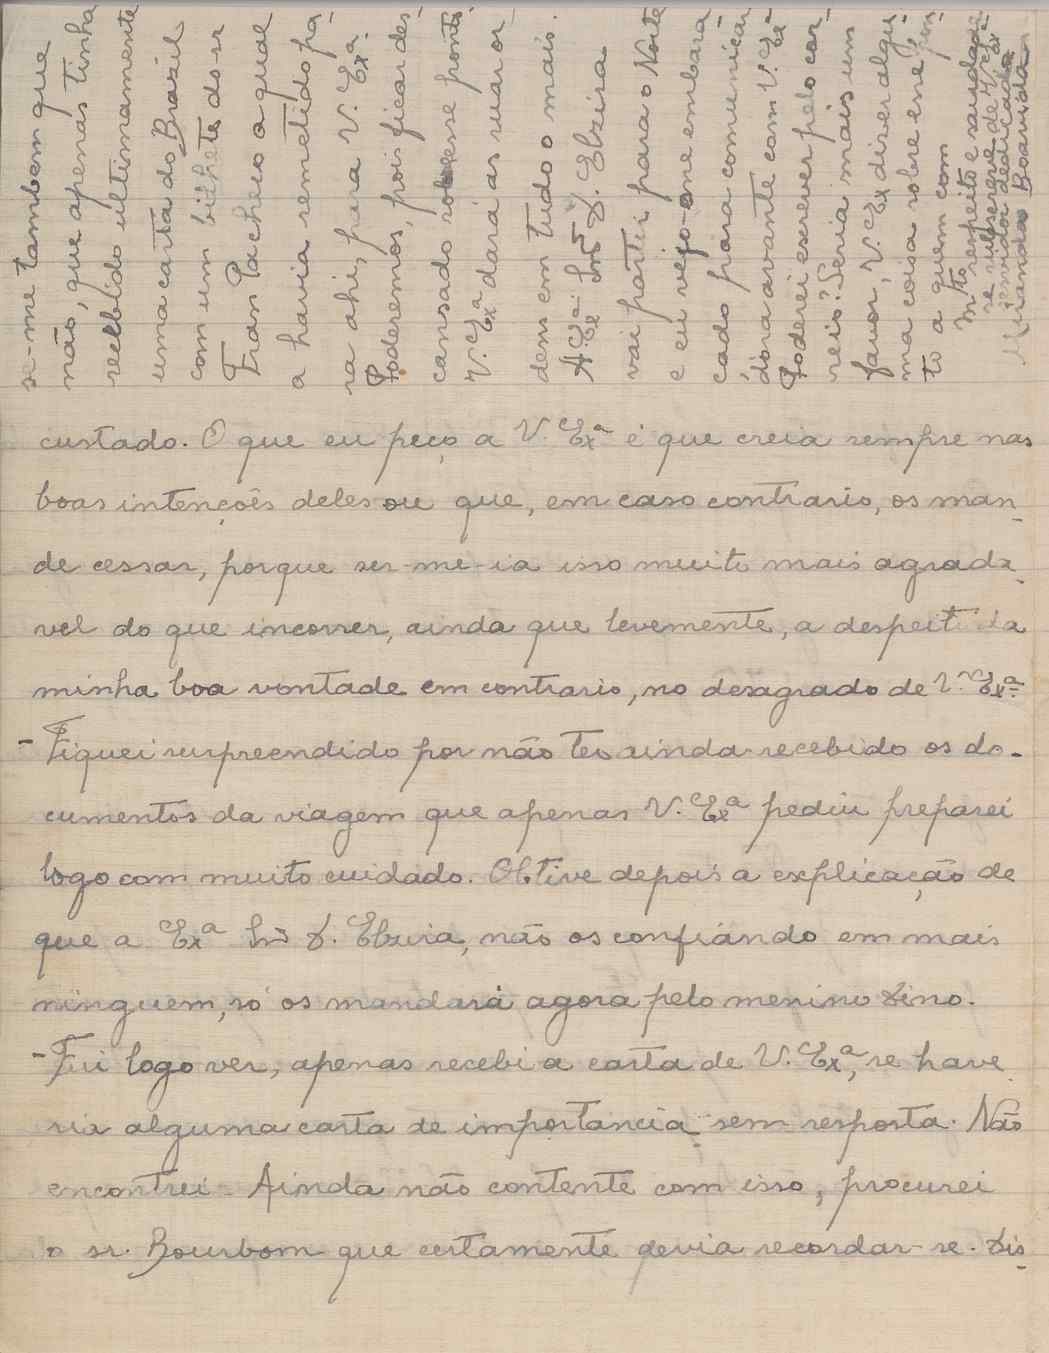 custado. O que eu peço a V. Exª é que creia sempre nas
boas intenções deles ou que, em caso contrario, os man-
de cessar, porque ser-me-ia isso muito mais agrada-
vel do que incorrer, ainda que levemente, a despeito da
minha boa vontade em contrario, no desagrado de V. Exª
- Fiquei surpreendido por não ter ainda recebido os do-
cumentos da viagem que apenas V. Exª pediu preparei
logo com muito cuidado. Obtive depois a explicação de
que a Exª Snrª D. Elzira, não os confiando em mais
ninguem, só os mandará agora pelo menino Dino.
- Fui logo ver, apenas recebi a carta de V. Exª, se have-
ria alguma carta de importancia sem resposta. Não
encontrei. Ainda não contente com isso, procurei
o sr. Bourbom que certamente devia recordar-se. Dis-
se-me tambem que
não, que apenas tinha
recebido ultimamente
uma carta do Brazil
com um bilhete do sr
Fran Pacheco a qual
a havia remetido pa-
ra ahi, para V. Exª.
Poderemos, pois ficar des-
cansado sobre esse ponto
V. Exª dará as suas or-
dens em tudo o mais.
A Exª Snrª D. Elzira
vai partir para o Norte
e eu vejo-me embara-
çado para comunicar
d'ora avante com V. Exª
Poderei escrever pelo cor-
reio? Seria mais um
favor, V. Ex dizer algu-
ma coisa sobre esse pon-
to a quem com
mto respeito e saudade
se subscreve de V. Exª
servidor dedicado
Miranda Boavida